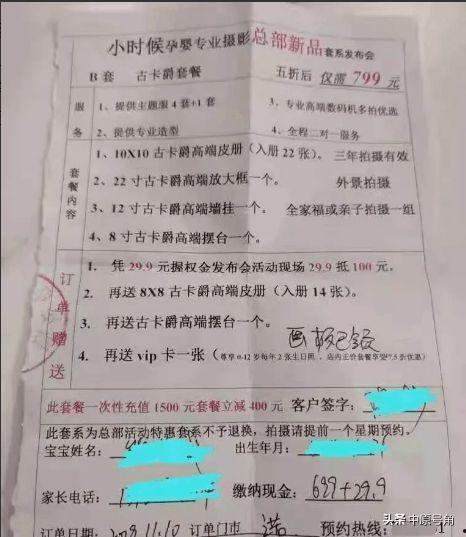 小时候孕婴专业摄影总部新品套系发布会
B 套 古卡爵套餐 五折后 仅需 799 元
服务
1、提供主题服 4 套+1 套
3、专业高端数码机多拍优选
2、提供专业造型
4、全程二对一服务
套餐内容
1、10X10 古卡爵高端皮册（入册 22 张）。 三年拍摄有效
2、22 寸古卡爵高端放大框一个。 外景拍摄
3、12 寸古卡爵高端墙挂一个。 全家福或亲子拍摄一组
4、8 寸古卡爵高端摆台一个。
订单赠送
1. 凭 29.9 元握权金发布会活动现场 29.9 抵 100 元。
2. 再送 8X8 古卡爵高端皮册（入册 14 张）。
3. 再送古卡爵高端摆台一个。
4. 再送 vip 卡一张（尊享 0-12 岁每年 2 张生日照、店内正价套餐享受 7.5 折优惠）
此套餐一次性充值 1500 元套餐立减 400 元 客户签字：
此套系为总部活动特惠套系不予退换，拍摄请提前一个星期预约。
宝宝姓名： 出生年月：
家长电话： 缴纳现金：699+29.9
订单日期： 订单门市 预约热线： 1
头条 @中原号角